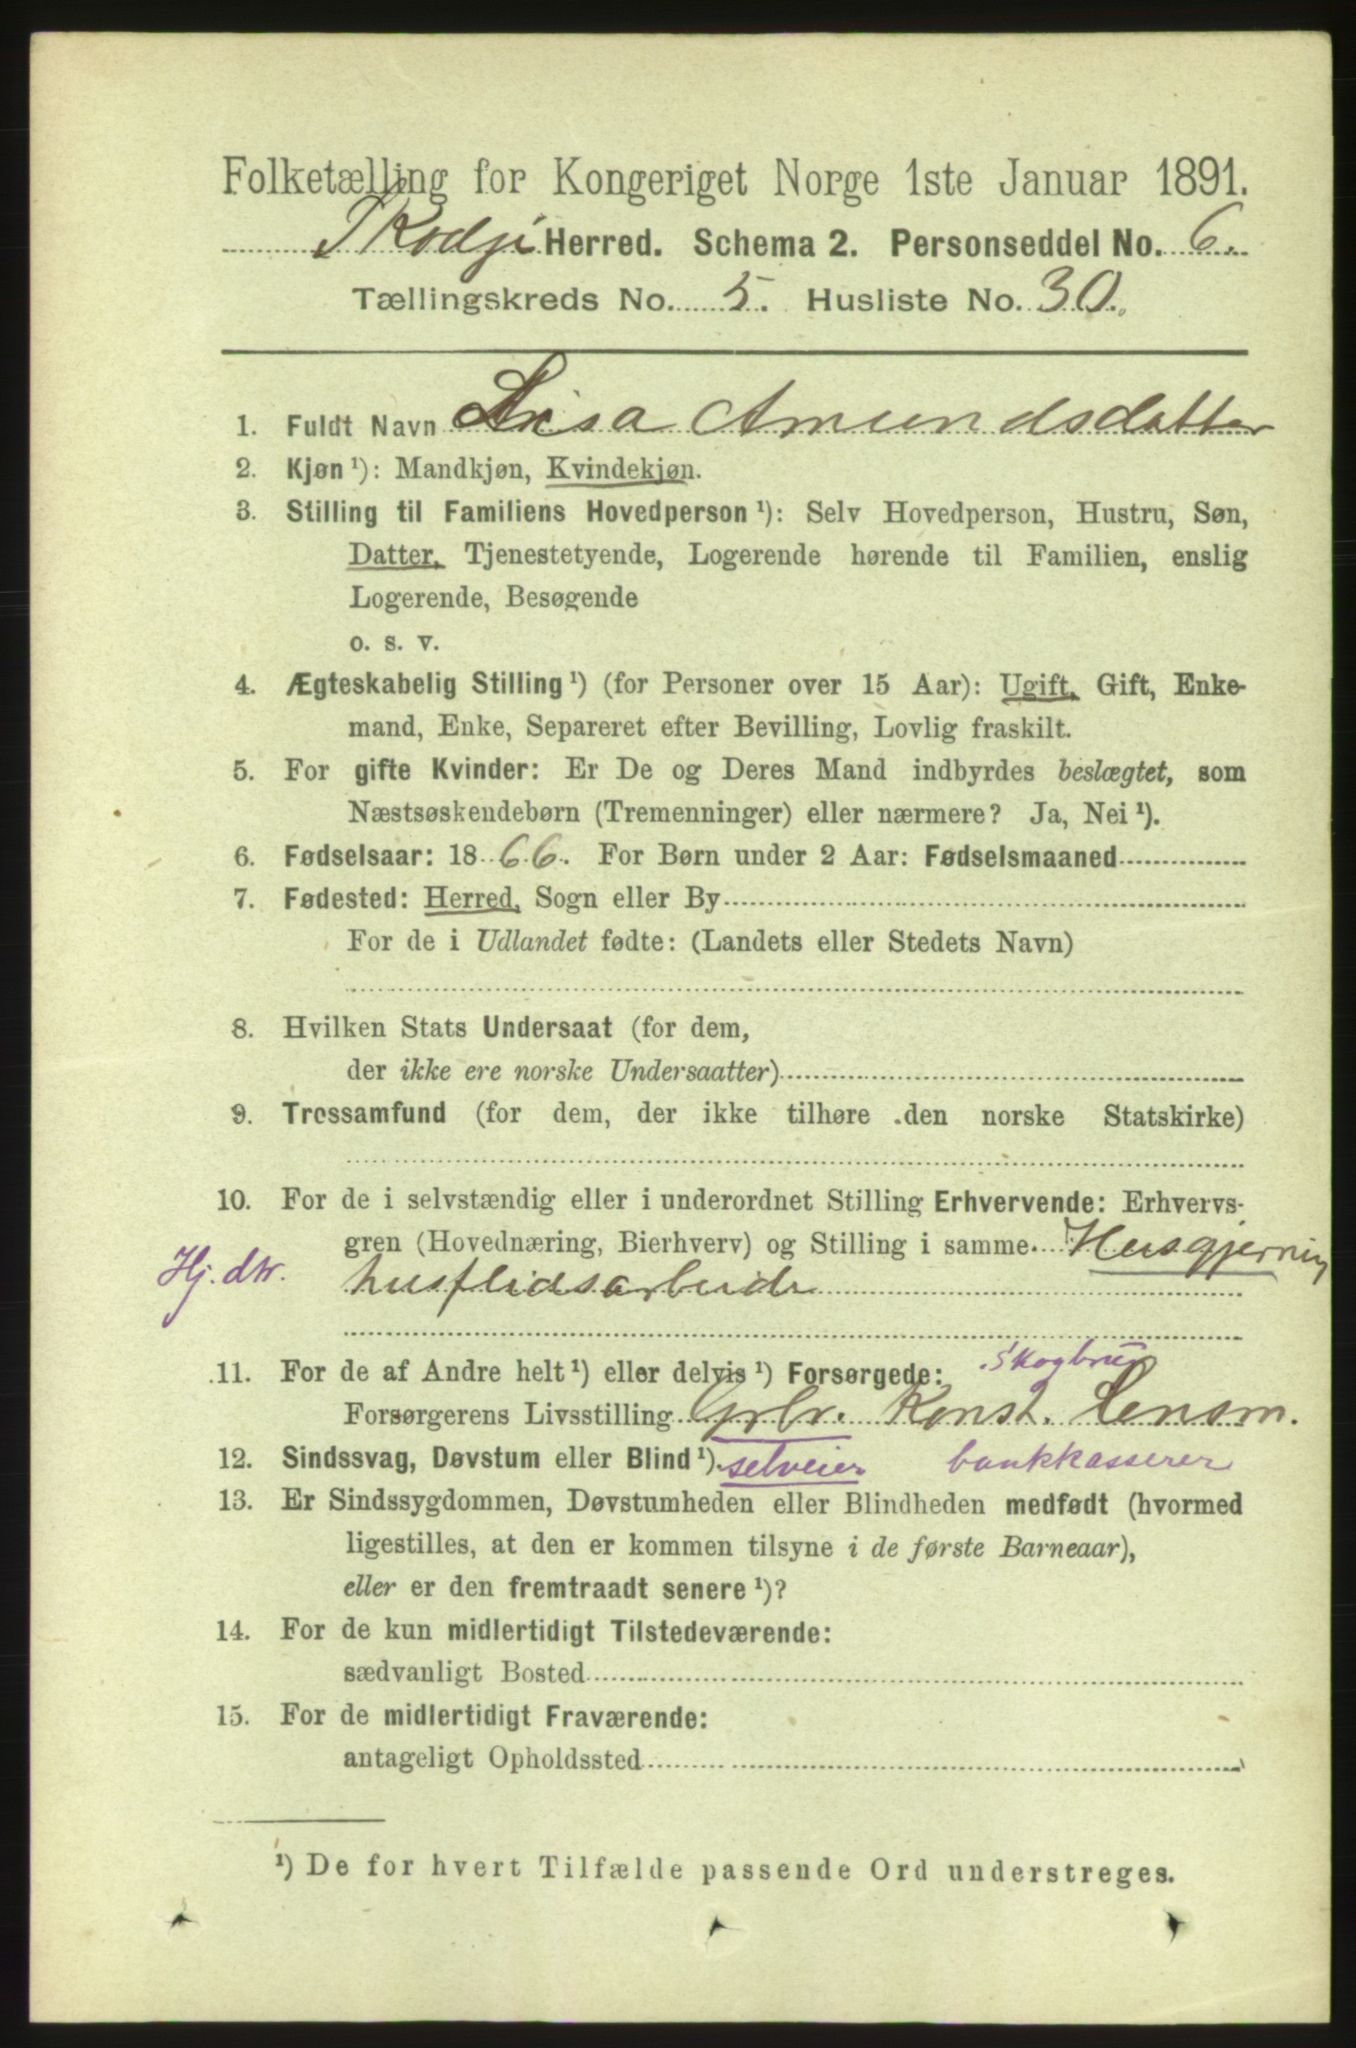 Folketælling for Kongeriget Norge 1ste Januar 1891.
Skodje Herred. Schema 2. Personseddel No. 6.
Tællingskreds No. 5. Husliste No. 30.
1. Fuldt Navn Lisa Amundsdatter
2. Kjøn ¹): Mandkjøn, Kvindekjøn.
3. Stilling til Familiens Hovedperson ¹): Selv Hovedperson, Hustru, Søn,
Datter, Tjenestetyende, Logerende hørende til Familien, enslig
Logerende, Besøgende
o. s. v.
4. Ægteskabelig Stilling ¹) (for Personer over 15 Aar): Ugift, Gift, Enke-
mand, Enke, Separeret efter Bevilling, Lovlig fraskilt.
5. For gifte Kvinder: Er De og Deres Mand indbyrdes beslægtet, som
Næstsøskendebørn (Tremenninger) eller nærmere? Ja, Nei ¹).
6. Fødselsaar: 1866. For Børn under 2 Aar: Fødselsmaaned
7. Fødested: Herred, Sogn eller By
For de i Udlandet fødte: (Landets eller Stedets Navn)
8. Hvilken Stats Undersaat (for dem,
der ikke ere norske Undersaatter)
9. Trossamfund (for dem, der ikke tilhøre den norske Statskirke)
10. For de i selvstændig eller i underordnet Stilling Erhvervende: Erhvervs-
gren (Hovednæring, Bierhverv) og Stilling i samme. Husgjerning
Hj. dtr. husflidsarbeide
11. For de af Andre helt ¹) eller delvis ¹) Forsørgede: skogbrug
Forsørgerens Livsstilling Grbr. Konst. Lensm.
12. Sindssvag, Døvstum eller Blind ¹). selveier bankkasserer
13. Er Sindssygdommen, Døvstumheden eller Blindheden medfødt (hvormed
ligestilles, at den er kommen tilsyne i de første Barneaar),
eller er den fremtraadt senere ¹)?
14. For de kun midlertidigt Tilstedeværende:
sædvanligt Bosted
15. For de midlertidigt Fraværende:
antageligt Opholdssted
¹) De for hvert Tilfælde passende Ord understreges.